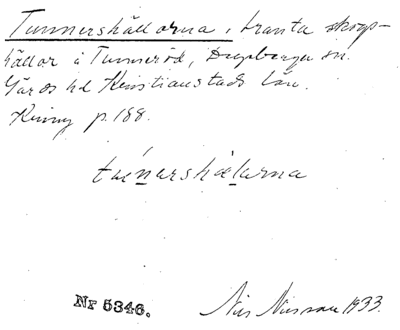 Tunnershällorna, branta skogs-
hällor å Tunneröd, Degeberga sn.
Gärds hd Kristianstads län.
p. 188.
Nr 5346. Nils Nilsson 1933.